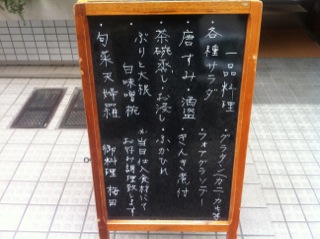 一品料理
・各種サラダ ・グラタン(カニ カキ等)
・唐すみ・酒盗 ・フォアグラソテー
・茶碗蒸し・お浸し ・きんき煮付
・ぶりと大根 ・ふかひれ
白味噌椀 ※当日仕入食材にて
お好み調理致します
・旬菜天婦羅 御料理 梅田